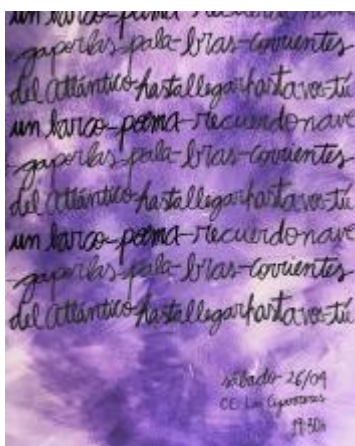 un barco-poema-recuerdo nave
-gaporlas-pala-bras-corrientes
del atlántico hasta llegar hasta vos-tú
un barco-poema-recuerdo nave
-gaporlas-pala-bras-corrientes
del atlántico hasta llegar hasta vos-tú
un barco-poema-recuerdo nave
-gaporlas-pala-bras-corrientes
del atlántico hasta llegar hasta vos-tú
sábado 26/09
19:30h